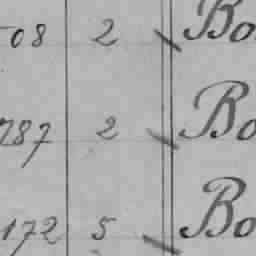 08 2 Bo
787 2 Bo
172 5 Bo